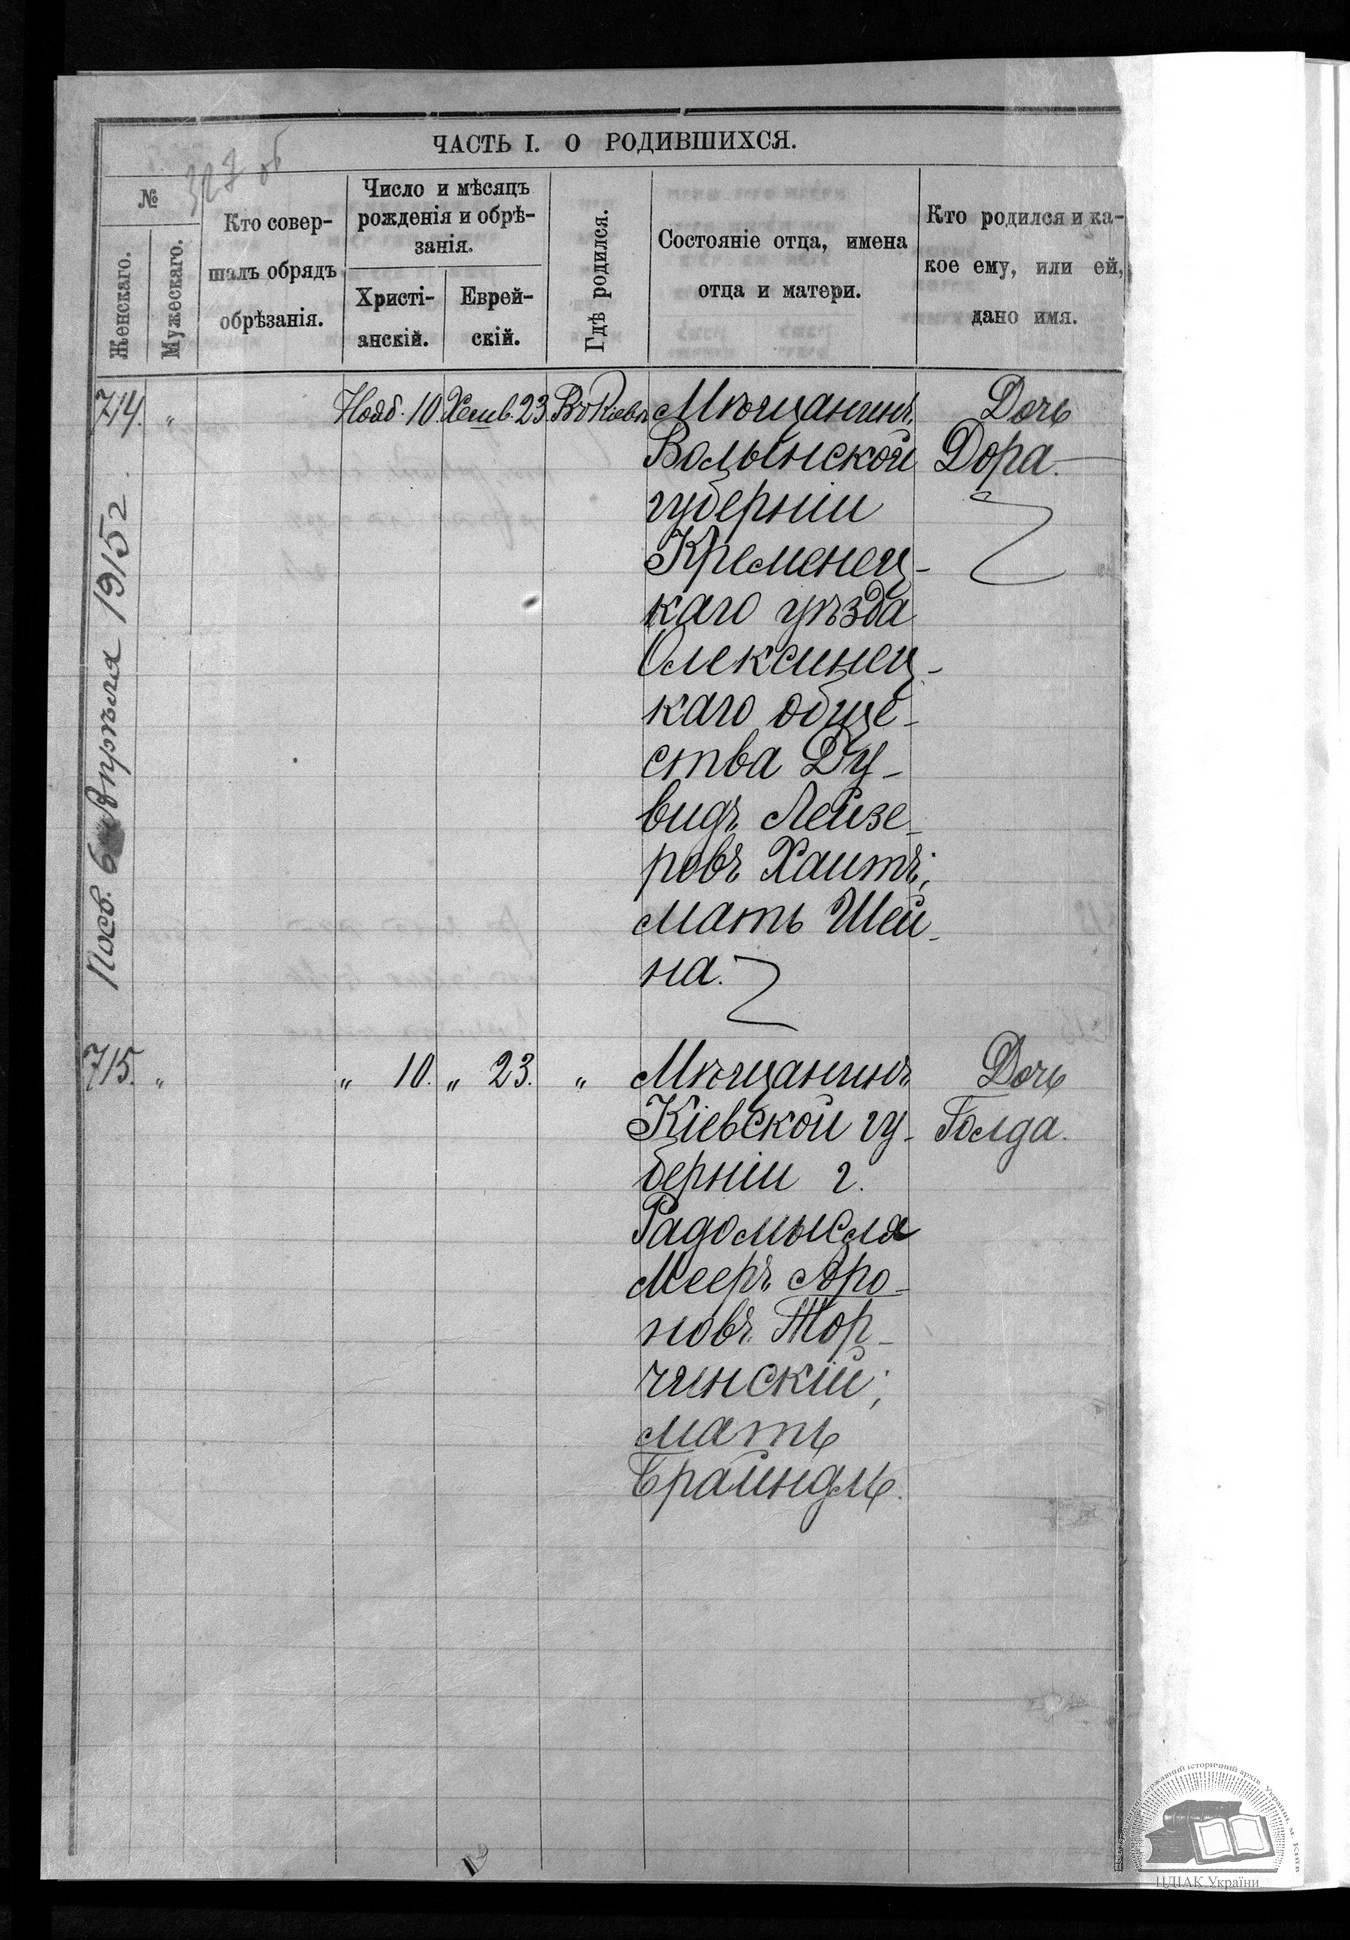 ЧАСТЬ I. О РОДИВШИХСЯ.
327 об
№
Женскаго.
Мужескаго.
Кто совер-
шалъ обрядъ
обрѣзанія.
Число и мѣсяцъ
рожденія и обрѣ-
занія.
Христі-
анскій.
Еврей-
скій.
Гдѣ родился.
Состояніе отца, имена
отца и матери.
Кто родился и ка-
кое ему, или ей,
дано имя.
714. " Нояб. 10. Хешв. 23. Въ Кіевѣ Мѣщанинъ Дочь
Волынской Дора.
губерніи
Кременец-
каго уѣзда
Олексинец-
каго обще-
ства Ду-
видъ Лейзе-
ровъ Хаитъ;
мать Шей-
на.
Посв. 6 Апрѣля 1915 г
715. " " 10. " 23. " Мѣщанинъ Дочь
Кіевской гу- Голда.
берніи г.
Радомысля
Мееръ Аро-
новъ Тор-
чинскій;
мать
Брайндль.
ЦДІАК України